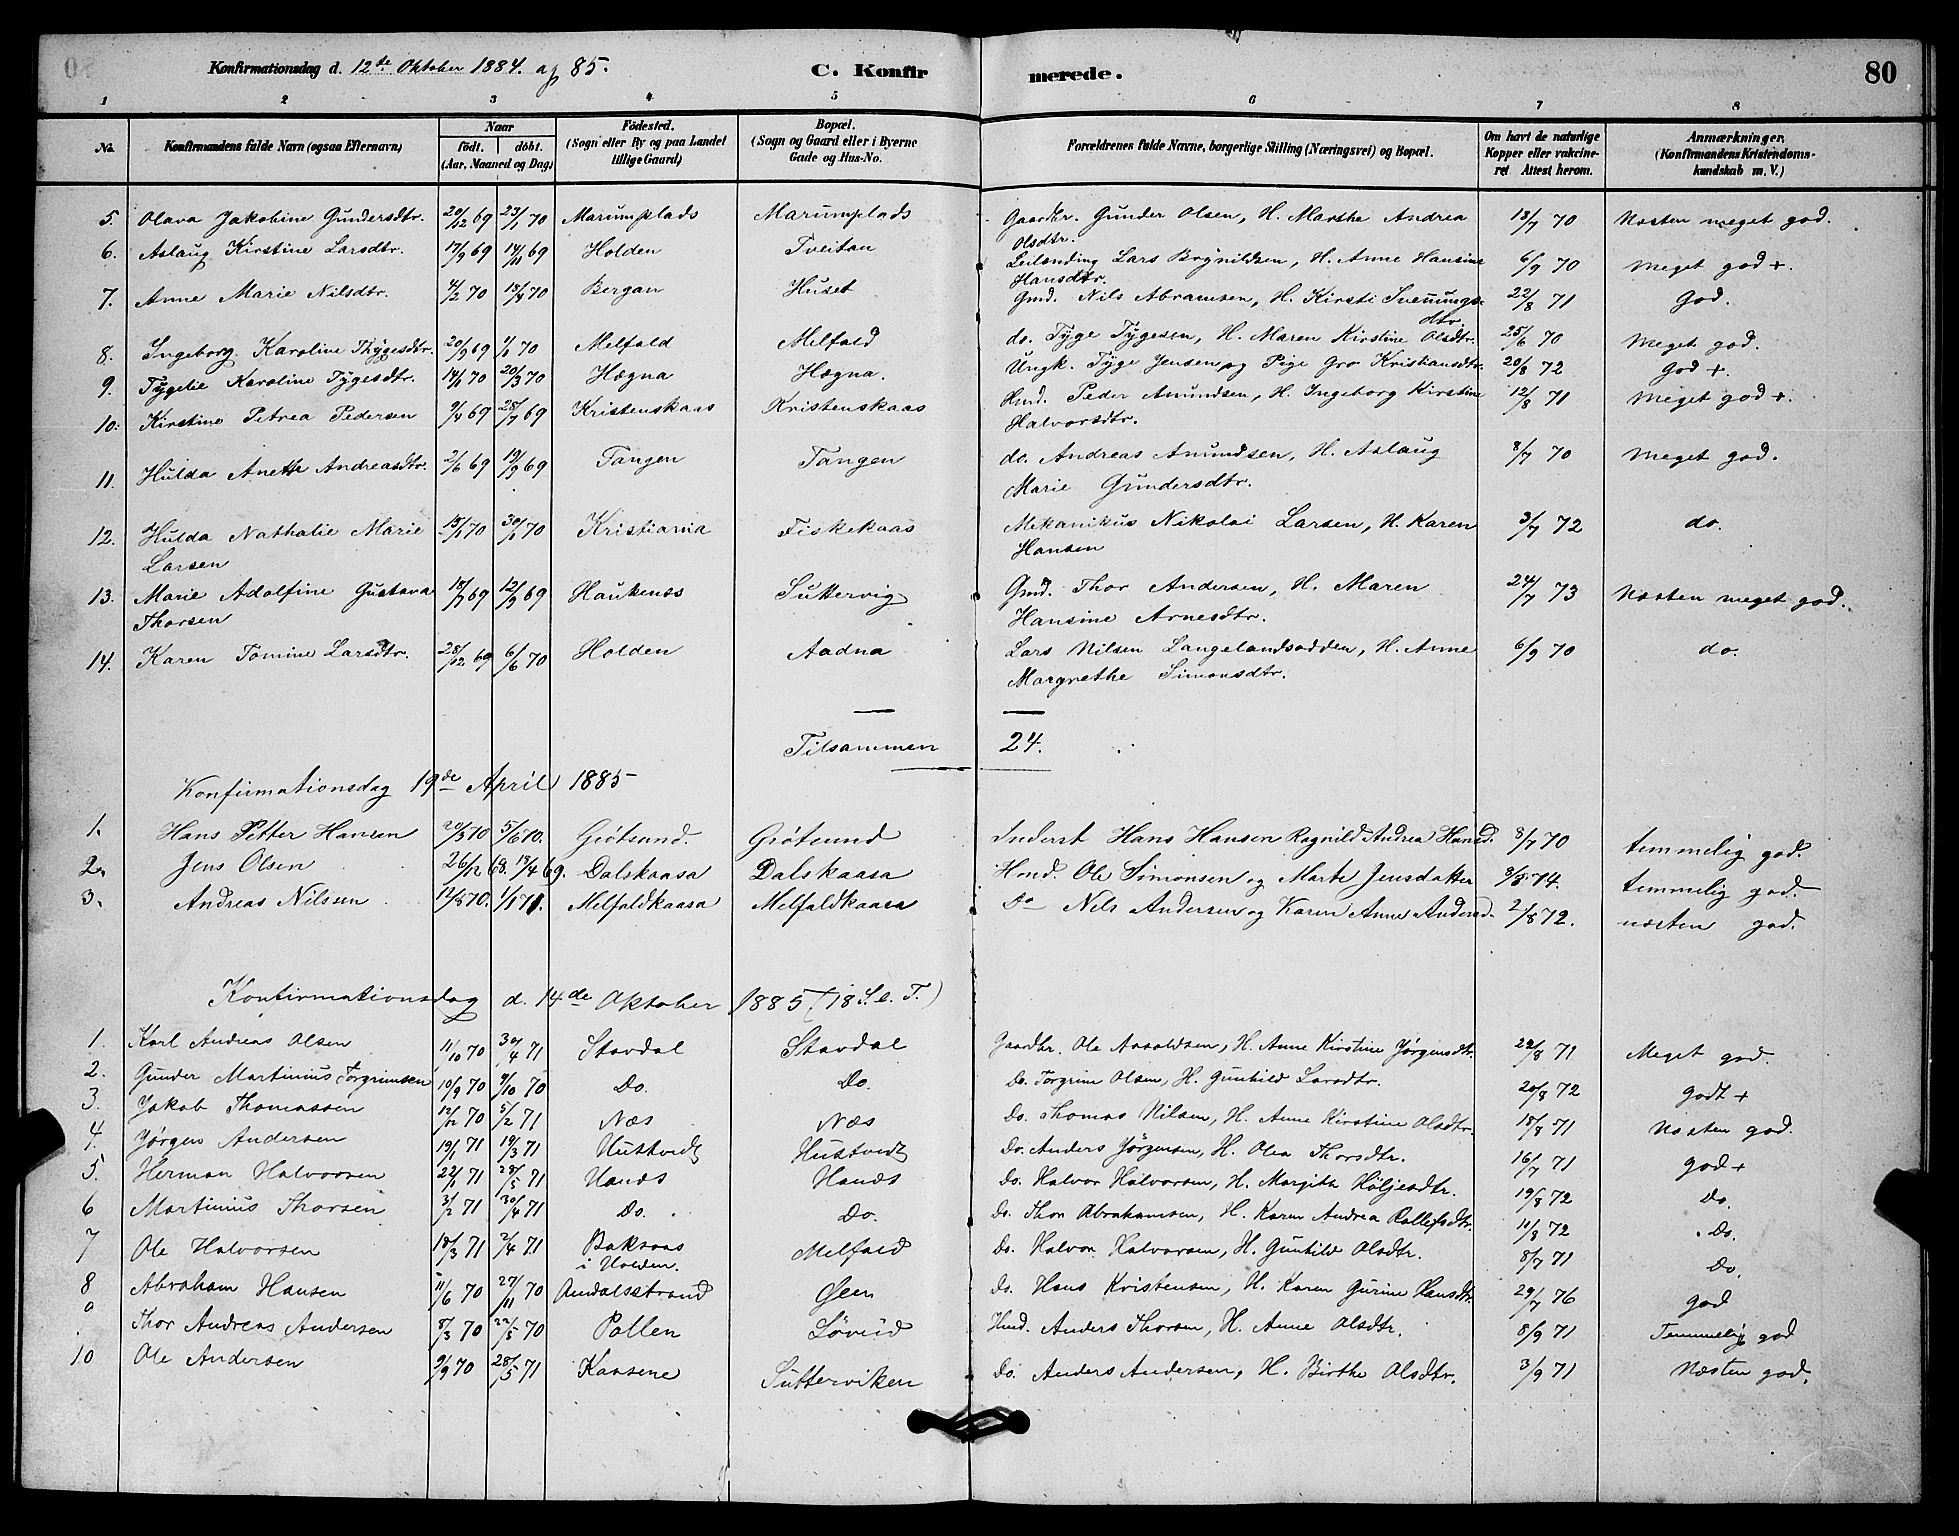 Konfirmationsdag d. 12te Oktober 1884. og 85. C. Konfirmerede. 80
1 2 3 4 5 6 7 8
No. Konfirmandens fulde Navn (ogsaa Efternavn) Naar födt. döbt. (Aar, Maaned og Dag) Födested. (Sogn eller By og paa Landet tillige Gaard) Bopæl. (Sogn og Gaard eller i Byerne Gade og Hus-No. Forældrenes fulde Navne, borgerlige Stilling (Næringsvei) og Bopæl. Om havt de naturlige Kopper eller vakcineret Attest herom. Anmærkninger. (Konfirmandens Kristendomskundskab m. V.)
5. Olava Jakobine Gundersdtr. 20/12 69 23/1 70 Marumplads Marumplads Gaardbr. Gunder Olsen, H. Marthe Andrea Olsdtr. 13/7 70 Næsten meget god.
6. Aslaug Kirstine Larsdtr. 17/9 69 14/11 69 Holden Tveitan Leilending Lars Brynildsen, H. Anne Hansine Hansdtr. 6/9 70 Meget god +.
7. Anne Marie Nilsdtr. 4/2 70 Bergan Huset Gmd. Nils Abramsen, H. Kirsti Svenungsdtr. 22/8 71 God.
8. Ingeborg Karoline Thygesdtr. 20/9 69 1/1 70 Melfald Melfald do. Tyge Tygesen, H. Maren Kirstine Olsdtr. 25/6 70 Meget god.
9. Tygelie Karoline Tygesdtr. 14/1 70 20/3 70 Hægna Hægna. Ungk. Tyge Jensen og Pige Gro Kristiansdtr. 20/8 72 God +.
10. Kirstine Petrea Pedersen 9/4 69 25/7 69 Kristenskaas Kristenskaas Hmd. Peder Amundsen, H. Ingeborg Kirstine Halvorsdtr. 12/8 71 Meget god +.
11. Hulda Anette Andreasdtr. 2/6 69 19/9 69 Tangen Tangen do. Andreas Amundsen, H. Aslaug Marie Gundersdtr. 8/7 70 Meget god.
12. Hulda Nathalie Marie Larsen 15/1 70 30/1 70 Kristiania Fiskekaas Mekanikus Nikolai Larsen, H. Karen Hansen 3/7 72 do.
13. Marie Adolfine Gustava Thorsen 18/7 69 12/9 69 Haukenes Suttervig Gmd. Thor Andersen, H. Maren Hansine Arnesdtr. 24/7 73 Næsten meget god.
14. Karen Tomine Larsdtr. 28/12 69 6/6 70 Holden Aadna Lars Nilsen Langelandsodden, H. Anne Margrethe Simonsdtr. 6/9 70 do.
Tilsammen 24.
Konfirmationsdag 19de April 1885
1. Hans Petter Hansen 20/3 70 5/6 70. Grötsund. Grötsund Inderst Hans Hansen Ragnild Andrea Hansd. 8/7 70 temmelig god.
2. Jens Olsen 26/12 68. 18/4 69. Dalskaasa Dalskaasa Hmd. Ole Simonsen og Marte Jensdatter 9/8 74. temmelig god.
3. Andreas Nilssen 12/8 70. 1/1 71. Melfaldkaasa Melfaldkaasa Do Nils Andersen og Karen Anne Andersd. 2/8 72. næsten god.
Konfirmationsdag d. 14de Oktober 1885 (18 S. e. T.)
1. Karl Andreas Olsen 11/10 70 30/4 71 Stavdal Stavdal Gaardbr. Ole Aasoldsen, H. Anne Kirstine Jørgensdtr. 22/8 71 Meget god.
2. Gunder Martinius Torgrimsen 10/9 70 9/10 70 Do. Do. Do. Torgrim Olsen, H. Gunhild Larsdtr. 20/8 72 godt +
3. Jakob Thomassen 12/12 70 5/2 71 Næs Næs Do. Thomas Nilsen, H. Anne Kirstine Olsdtr. 18/8 71 Næsten god.
4. Jørgen Andersen 19/1 71 19/3 71 Hustvedt Hustvedt Do. Anders Jörgensen, H. Olea Thorsdtr. 16/7 71 god +
5. Herman Halvorsen 22/1 71 28/5 71 Haads Haads Do. Halvor Halvorsen, H. Margith Höljesdtr. 19/8 72 Do.
6 Martinius Thorsen 3/2 71 30/4 71 Do. Do. Do. Thor Abrahamsen, H. Karen Andrea Rollefsdtr. 11/8 72 Do.
7 Ole Halvorsen 18/3 71 2/4 71 Baksaas i Holden. Melfald Do. Halvor Halvorsen, H. Gunhild Olsdtr. 8/7 71 Do.
8 Abraham Hansen 11/6 70 27/11 70 Aandalsstrand Øen Do. Hans Kristensen, H. Karen Gurine Hansdtr. 29/7 76 god
9 Thor Andreas Andersen 8/3 70 22/5 70 Pollen Lövud Hmd. Anders Thorsen, H. Anne Olsdtr. 8/9 71 Temmelig god
10 Ole Andersen 9/9 70 28/5 71 Kaasene Sutterviken Do. Anders Andersen, H. Birthe Olsdtr. 3/9 71 Næsten god.